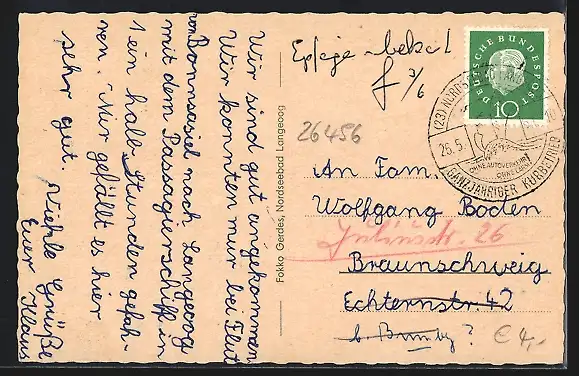 Wir sind gut angekommen
Wir konnten nur bei Flut
von Bonnsasiel nach Langeoog
mit dem Passagierschiff in
1 ein halb Stunden gefah-
ren. Mir gefällt es hier
sehr gut. Viehle Grüße
Euer Klaus
Fokko Gerdes, Nordseebad Langeoog
DEUTSCHE BUNDESPOST
10
(23) NORDS
26.5.
OHNE AUTOVERKEHR
GANZJÄHRIGER KURBETRIEB
f 3/6
26456
An Fam.
Wolfgang Boden
Juliusstr. 26
Braunschweig
Echternstr. 42
b. Bumby?
€ 4,-